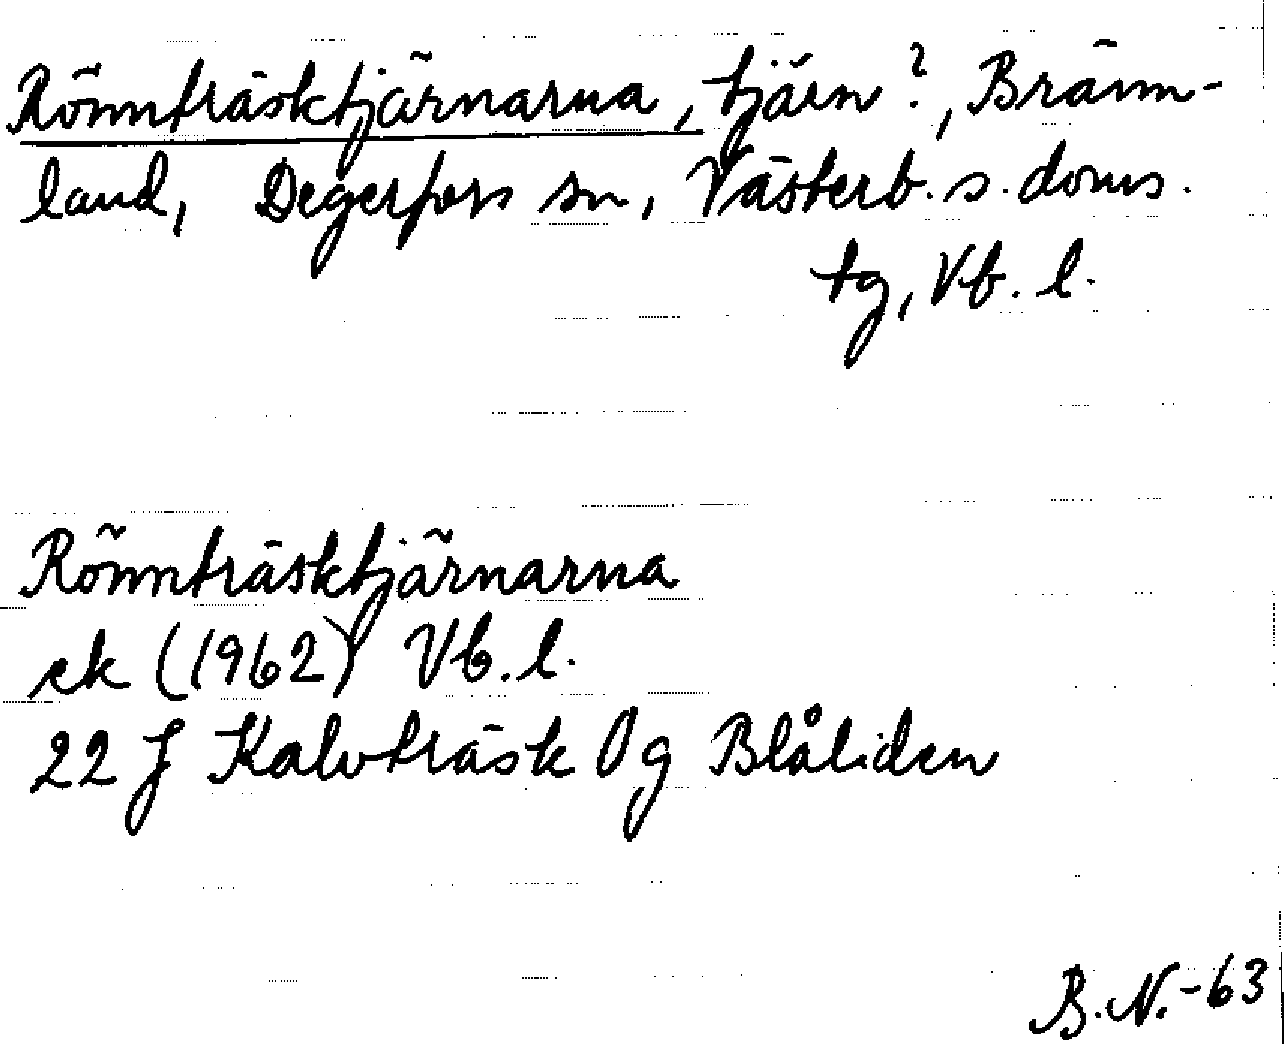 Rönnträsktjärnarna, tjärn?, Bränn-
land, Degerfors sn, Västerb. s. doms.
tg, Vb. l.
Rönnträsktjärnarna
ek (1962) Vb. l.
22 J Kalvträsk 0g Blåliden
B.N.-63